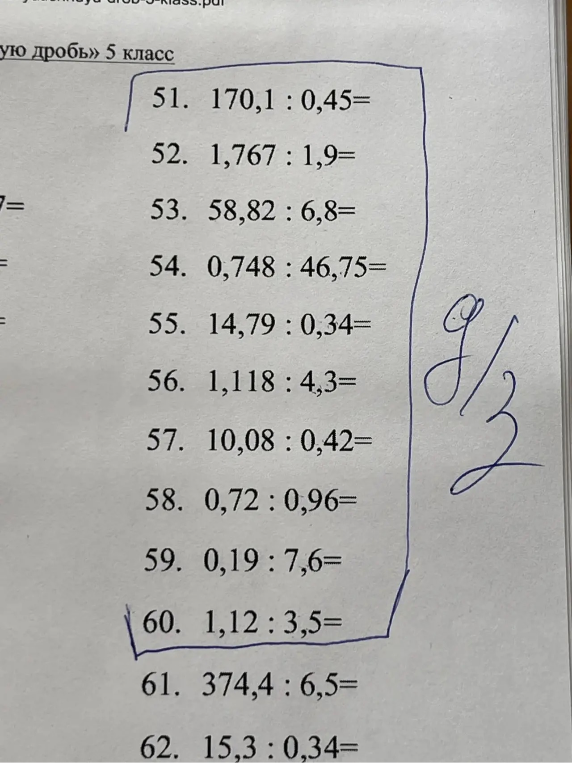 -5-klass.pdf
ую дробь» 5 класс
51. 170,1 : 0,45=
52. 1,767 : 1,9=
7=
53. 58,82 : 6,8=
=
54. 0,748 : 46,75=
=
55. 14,79 : 0,34=
56. 1,118 : 4,3=
57. 10,08 : 0,42=
58. 0,72 : 0,96=
59. 0,19 : 7,6=
60. 1,12 : 3,5=
61. 374,4 : 6,5=
62. 15,3 : 0,34=
д/з